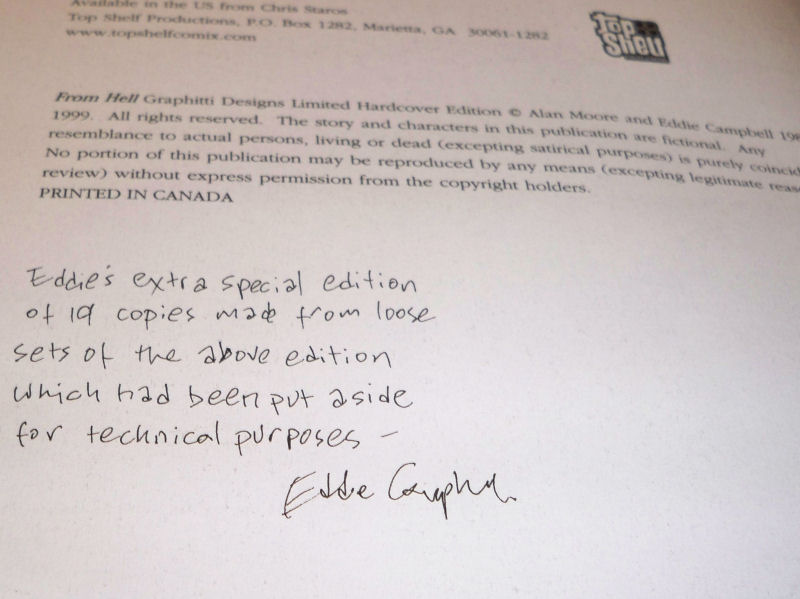 Available in the US from Chris Staros
Top Shelf Productions, P.O. Box 1282, Marietta, GA 30061-1282
www.topshelfcomix.com
Top
Shelf
From Hell Graphitti Designs Limited Hardcover Edition © Alan Moore and Eddie Campbell
1999. All rights reserved. The story and characters in this publication are fictional. Any
resemblance to actual persons, living or dead (excepting satirical purposes) is purely
No portion of this publication may be reproduced by any means (excepting legitimate
review) without express permission from the copyright holders.
PRINTED IN CANADA
Eddie's extra special edition
of 19 copies made from loose
sets of the above edition
which had been put aside
for technical purposes –
Eddie Campbell